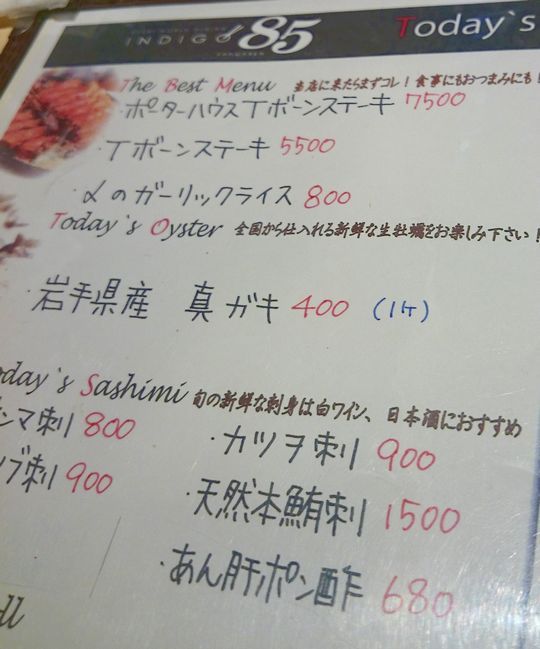 INDIGO 85 Today`s
The Best Menu 当店に来たらまずコレ!食事にもおつまみにも!
・ポーターハウスTボーンステーキ 7500
・Tボーンステーキ 5500
・〆のガーリックライス 800
Today`s Oyster 全国から仕入れる新鮮な生牡蠣をお楽しみ下さい!
・岩手県産 真ガキ 400 (1ケ)
oday`s Sashimi 旬の新鮮な刺身は白ワイン、日本酒におすすめ
ンマ刺 800
・カツヲ刺 900
ブ刺 900
・天然本鮪刺 1500
・あん肝ポン酢 680
ll